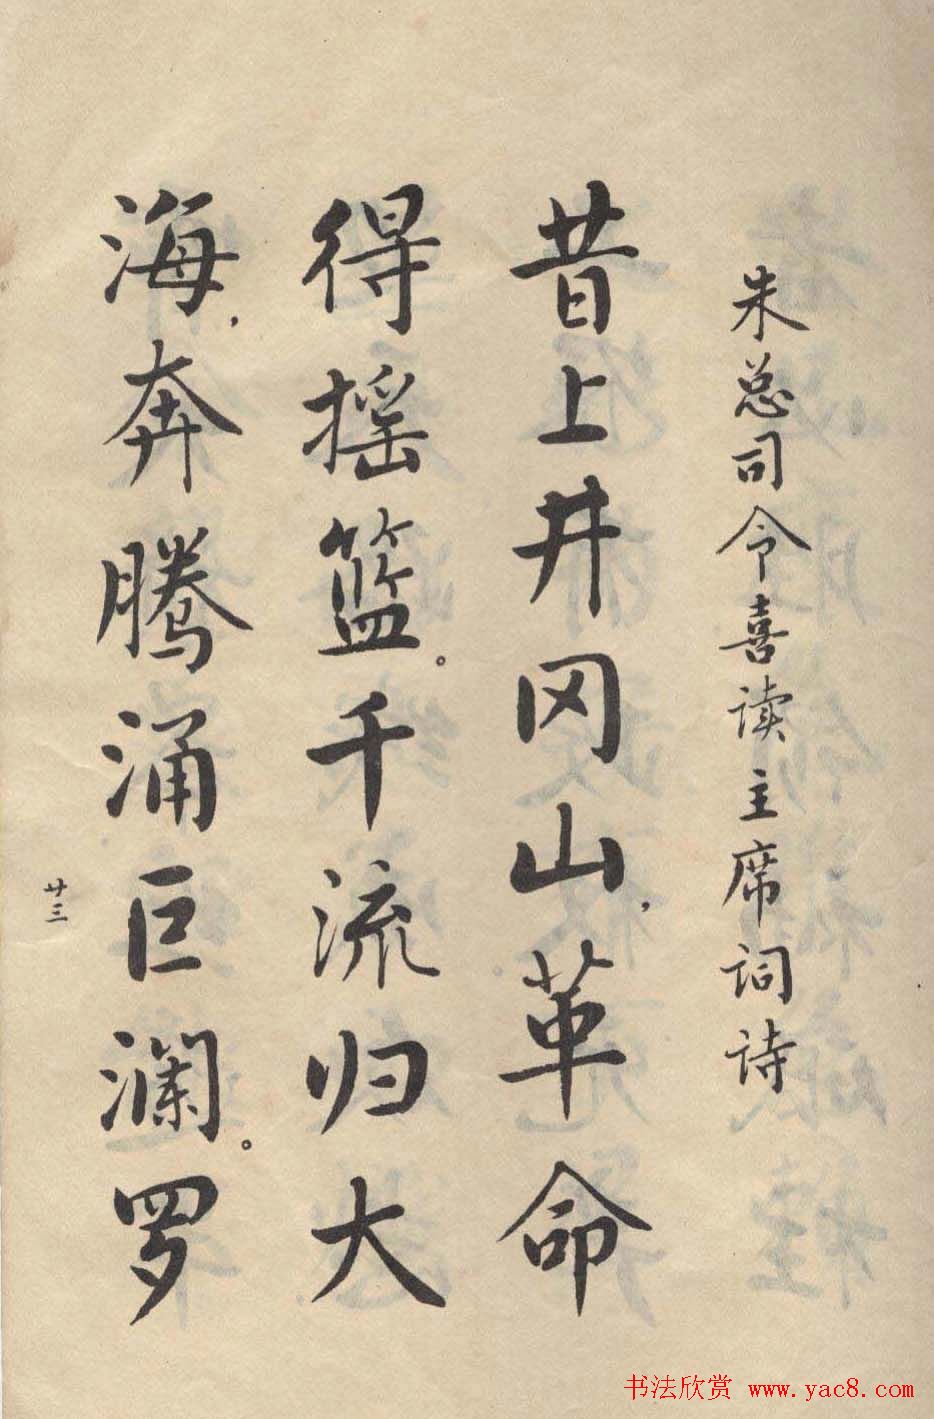 朱总司令喜读主席词诗
昔上井冈山,革命
得摇篮。千流归大
海,奔腾涌巨澜。罗
廿三
书法欣赏 www.yac8.com